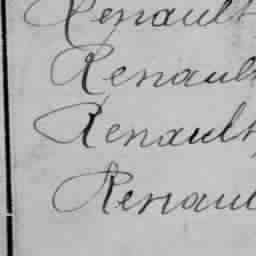 Renault
Renault
Renault
Renaul